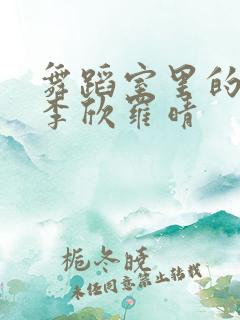 舞蹈室里的
李欣罗晴
栀冬晓
未经同意禁止转载